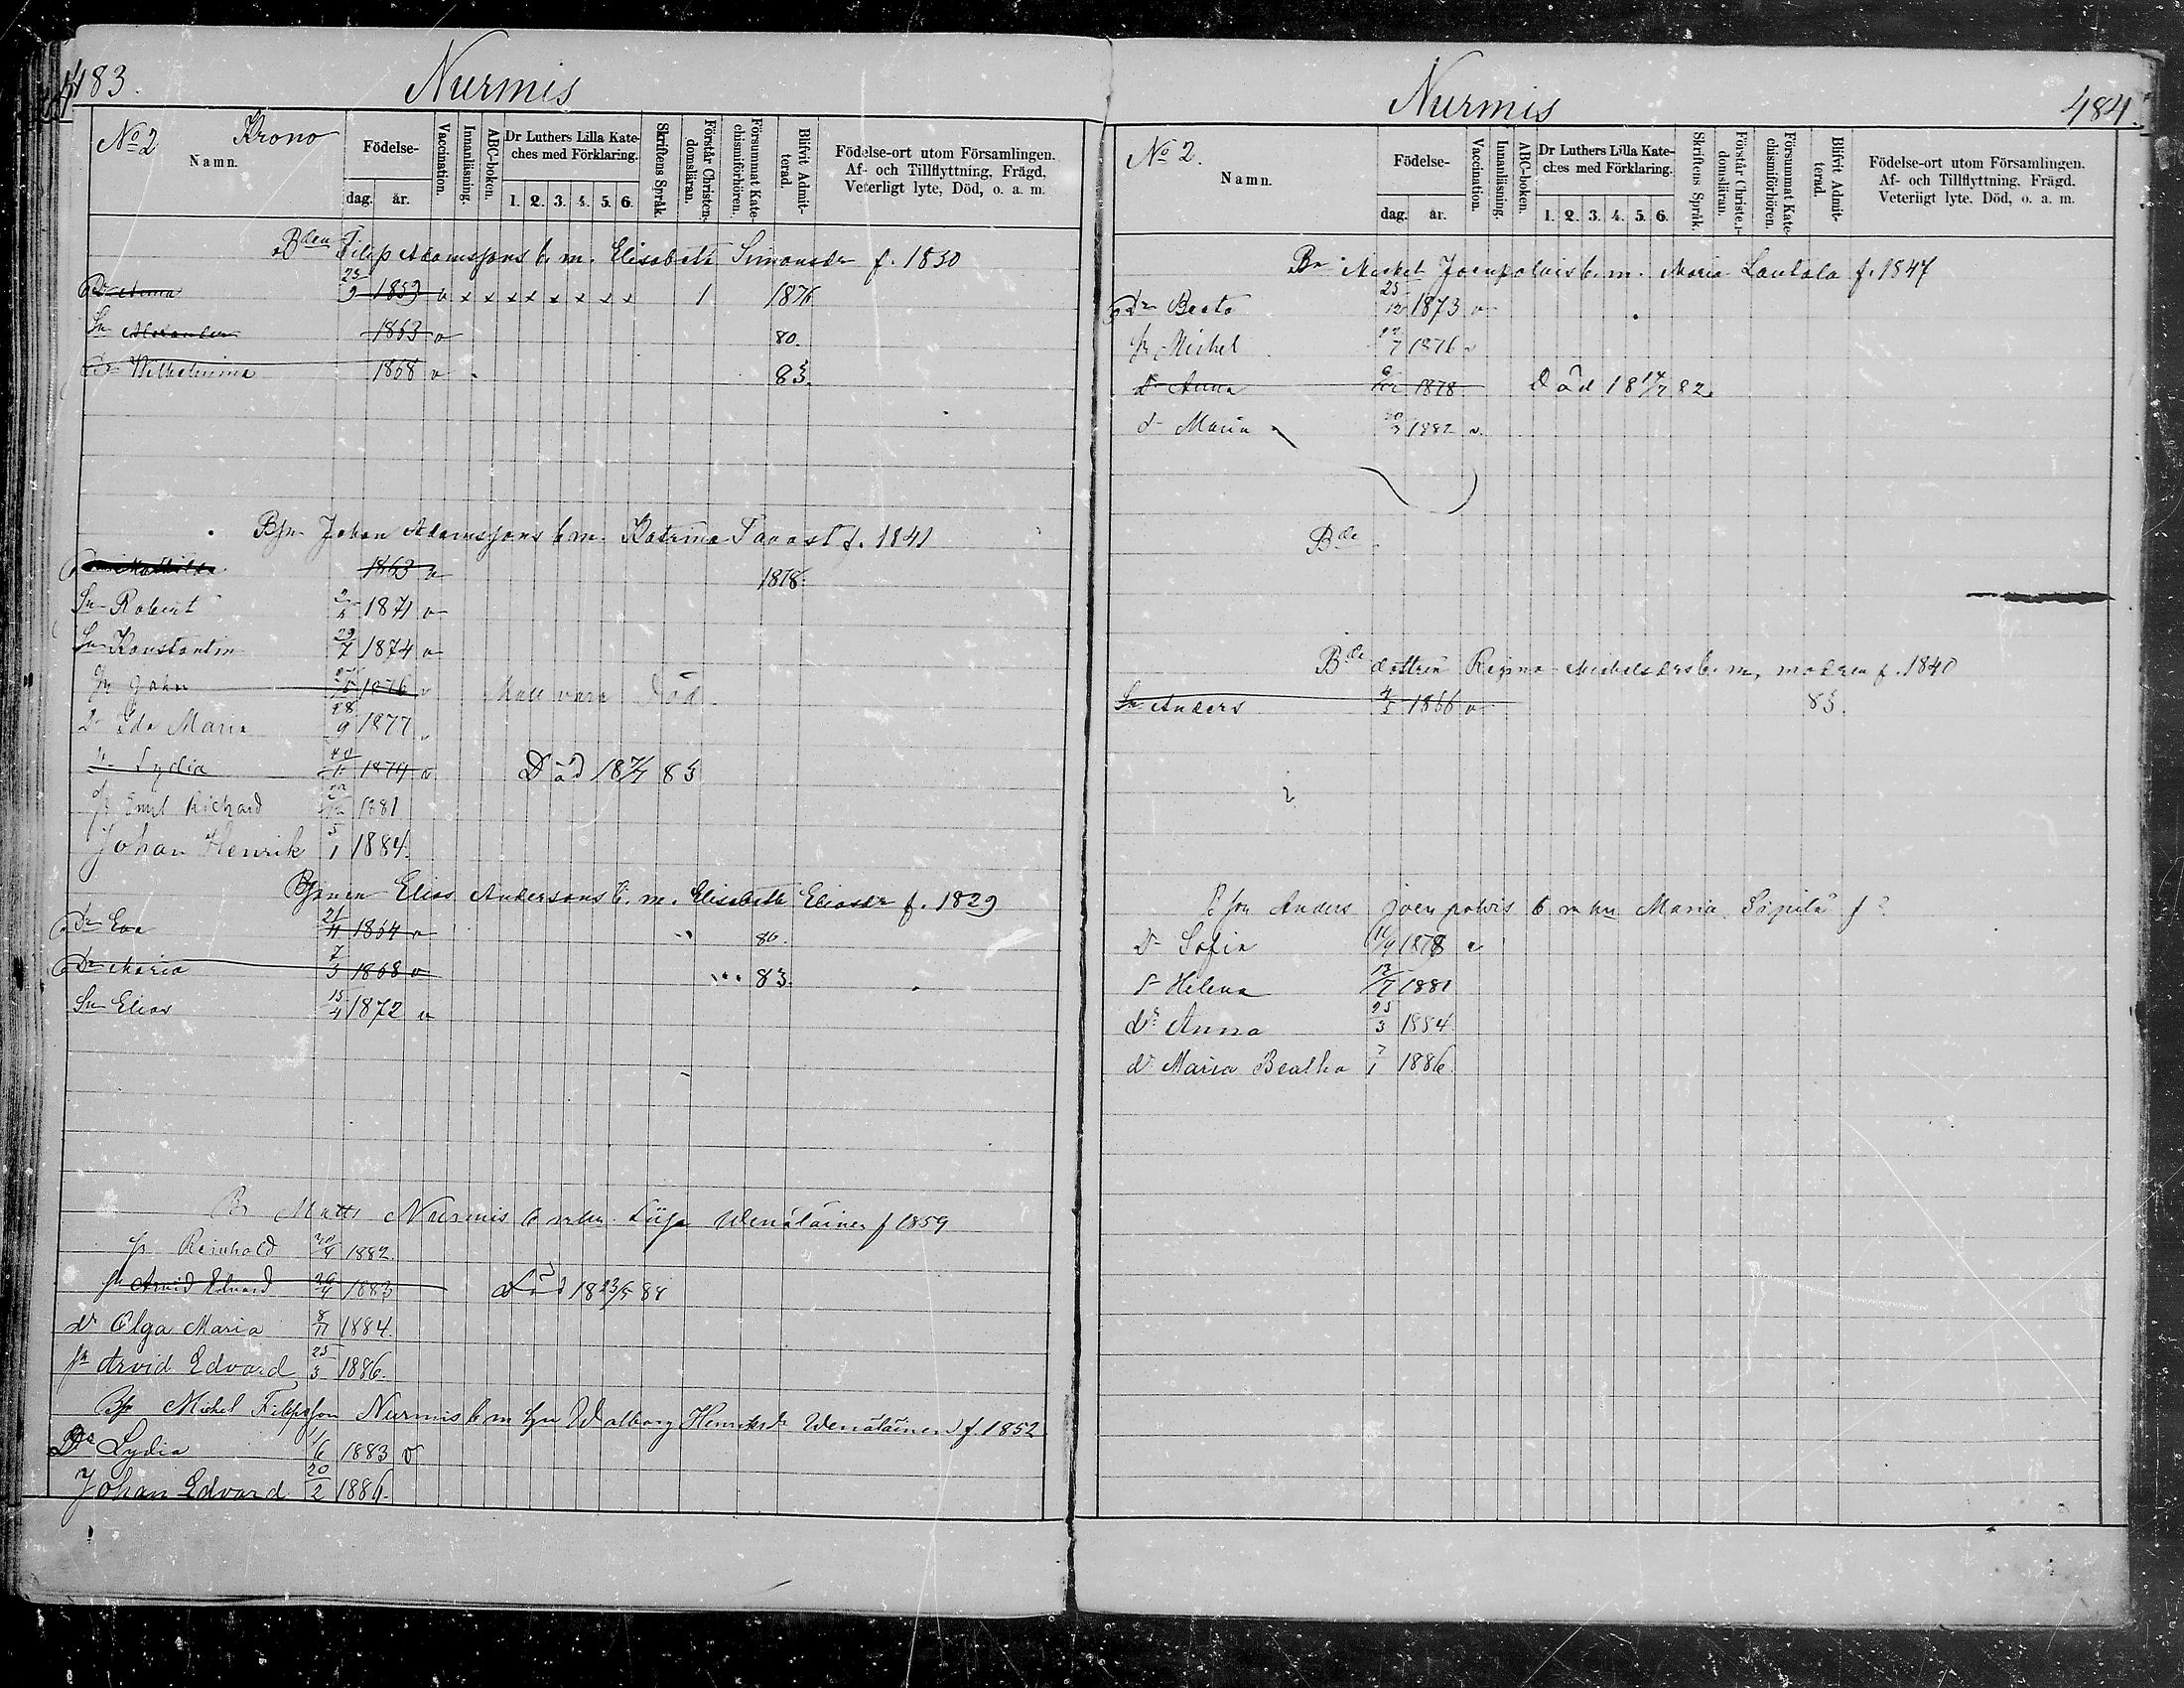 483.
Nurmis
No 2 Krono
Namn.
Födelse-
dag. år.
Vaccination.
Innanläsning.
ABC-boken.
Dr Luthers Lilla Kateches med Förklaring.
1. 2. 3. 4. 5. 6.
Skriftens Språk.
Förstår Christendomsläran.
Försummat Katechismiförhören.
Blifvit Admitterad.
Födelse-ort utom Församlingen.
Af- och Tillflyttning, Frägd,
Veterligt lyte, Död, o. a. m.
Bden Filip Adamssons b. m. Elisabeth Simonsdr f. 1830
Dr Anna 23/9 1853 v x x x x x x x x x 1 1876
Sn Alexander 1863 v 80.
Dr Wilhelmina 1868 v 83.
Bsn Johan Adamssons b m. Katrina Tavast f. 1841
Mathilda 1863 v 1878.
Sn Robert 1871 v
Sn Konstantin 29/7 1874 v
Sn John 1876 v Död
Dr Ida Maria 18/9 1877 v
Dr Lydia 1879 v Död 83
Sn Emil Richard 1881
Johan Henrik 5/1 1884.
Elias Anderssons b. m. Elisabeth Eliasdr f. 1829
Dr Eva 21/11 1864 v 80.
Dr Maria 7/3 1868 v 83.
Sn Elias 15/4 1872 v
Matts Nurmis b Wenäläinen f 1859
Sn Reinhold 1882.
Sn Arvid Edvard 1883 Död 18 23/5 84
Dr Olga Maria 8/11 1884.
Sn Arvid Edvard 25/3 1886.
Bsn Michel Filipsson Nurmis b m hu Walborg Henriksdr Wenäläinen f. 1852
Dr Lydia 1/6 1883 v
Johan Edvard 20/2 1886.
Nurmis
484.
No 2.
Namn.
Födelse-
dag. år.
Vaccination.
Innanläsning.
ABC-boken.
Dr Luthers Lilla Kateches med Förklaring.
1. 2. 3. 4. 5. 6.
Skriftens Språk.
Förstår Christendomsläran.
Försummat Katechismiförhören.
Blifvit Admitterad.
Födelse-ort utom Församlingen.
Af- och Tillflyttning, Frägd,
Veterligt lyte, Död, o. a. m.
Michel Joenpolvis b. m. Maria Lautala f. 1847
Dr Beata 25/12 1873 v
Sn Michel 1876 v
Dr Anna 1878 Död 18 14/7 82.
Dr Maria 1882 v.
Bde
Bde dottren Regina Michelsdrs b. m, modren f. 1840
Sn Anders 4/5 1866 v 83.
Anders Joenpolvis b m hu Maria f
Dr Sofia 1878 v
Dr Helena 1881
dr Anna 25/3 1884
dr Maria Beatha 7/1 1886